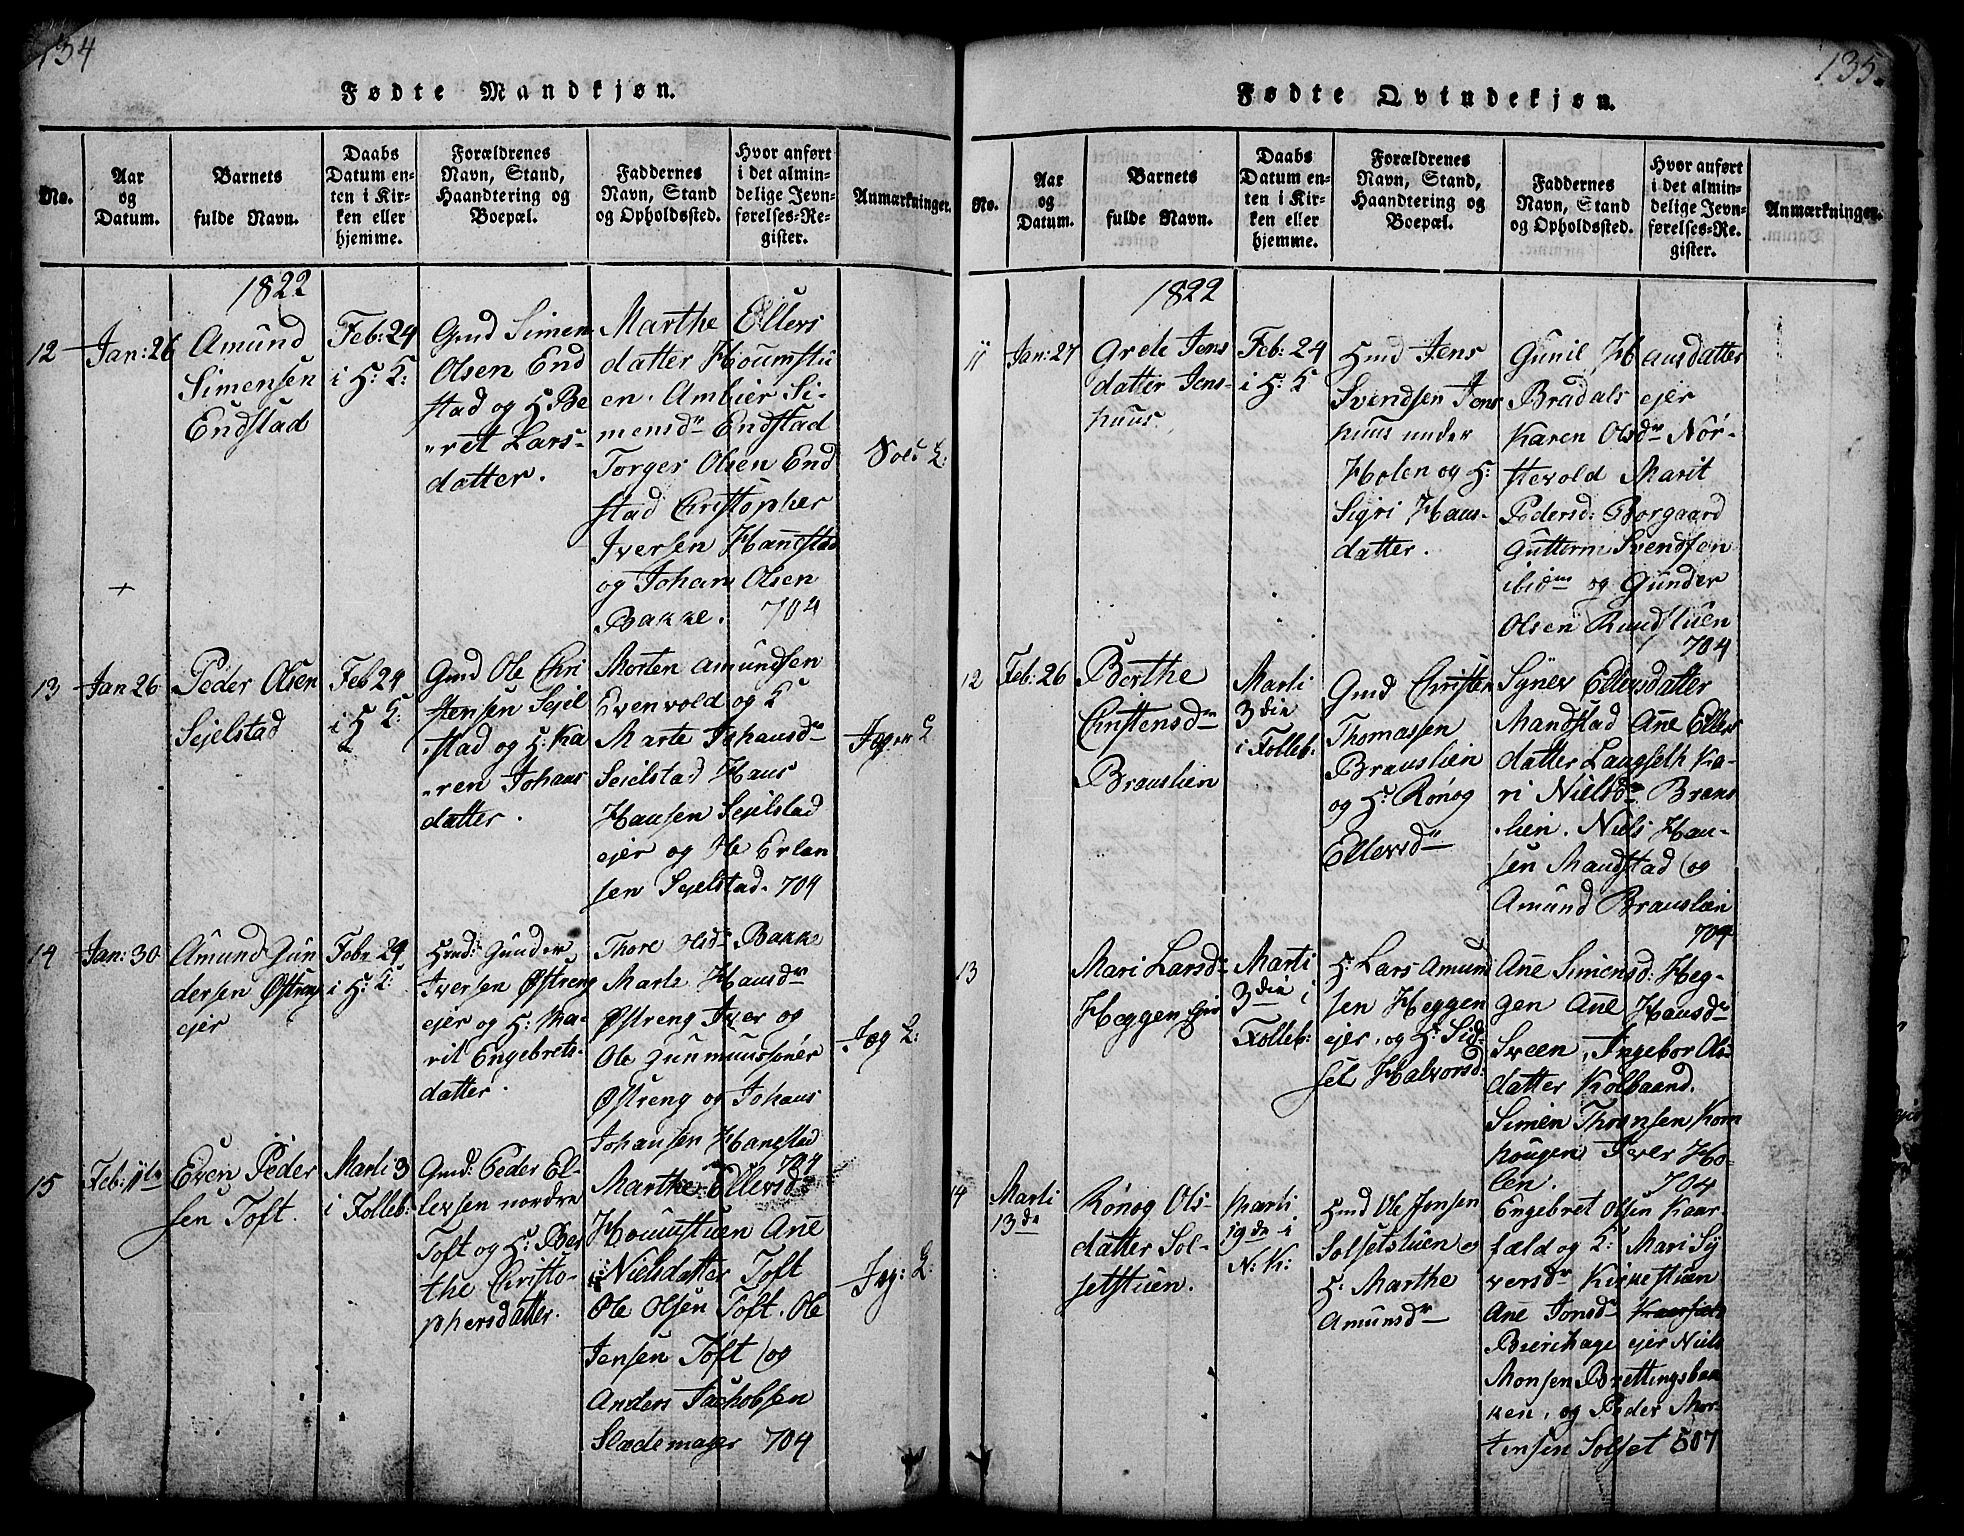 134
Fødte Mandkjøn.
No.
Aar
og
Datum.
Barnets
fulde Navn.
Daabs
Datum en-
ten i Kir-
ken eller
hjemme.
Forældrenes
Navn, Stand,
Haandtering og
Boepæl.
Faddernes
Navn, Stand
og Opholdssted.
Hvor anført
i det almin-
delige Jevn-
førelses-Re-
gister.
Anmærkninger.
1822
12
Jan: 26
Amund
Simensen
Endstad
Feb: 24
i H: K:
Gmd Simen
Olsen End
stad og H. Be
"ret Lars-
datter.
Marthe Ellers
datter Houmstu
en. Ambier Si-
mensdr Endstad
Torger Olsen End
stad Christopher
Iversen Hanestad
og Johan Olsen
Bakke. 704
13
Jan 26
Peder Olsen
Sejelstad
Feb 24
i H K:
Gmd Ole Chri
stensen Sejel
stad og H. Ka
"ren Johans
datter.
Morten Amundsen
Evenvold og K
Marte Johansdr
Sejelstad Hans
Hansen Sejelstad
ejer og Ole Erlan
sen Sejelstad. 704
14
Jan: 30
Amund Gun
dersen Østreng
ejer
Febr 24
i H: K:
Hmd: Gunder
Iversen Østreng
ejer og H: Ma-
rit Engebrets-
datter.
Thore Olsdr Bakke
Marte Hansdr
Østreng Iver og
Ole Gunmunssøner
Østreng og Johans
Johansen Hanestad
704
15
Feb: 11te
Even Peder
sen Toft.
Marti 3
i Folleb:
Gmd: Peder El-
levsen nordre
Toft og H: Ber
the Christo-
phersdatter.
Marthe Ellevsdr
Houmstuen Ane
Nielsdatter Toft
Ole Olsen Toft. Ole
Jensen Toft og
Anders Jachobsen
Slædemager 704
135.
Fødte Qvindekjøn.
No.
Aar
og
Datum.
Barnets
fulde Navn.
Daabs
Datum en-
ten i Kir-
ken eller
hjemme.
Forældrenes
Navn, Stand,
Haandtering og
Boepæl.
Faddernes
Navn, Stand
og Opholdssted.
Hvor anført
i det almin-
delige Jevn-
førelses-Re-
gister.
Anmærkninger.
1822
11
Jan: 27
Grete Jens
datter Jens-
huus.
Feb: 24
i H: K
Hmd Jens
Svendsen Jens
huus under
Holen og H:
Sigri Hans-
datter.
Gunil Hansdatter
Bradals ejer
Karen Olsdr Nør-
stevold Marit
Pedersd: Borgaard
Gutterm Svendsen
ibidm og Gunder
Olsen Rundstuen
704
12
Feb: 26
Berthe
Christensdr
Brauslien
Marti
3die
i Folleb:
Gmd Christen
Thomassen
Brauslien
og H: Rønog
Ellevsdr
Synev Ellensdatter
Mandstad Ane Ellers
datter Laugseth Ka-
ri Nielsdr Braus
lien. Niels Han-
sen Mandstad og
Amund Brauslien
704
13
Mari Larsdr
Heggen
Marti
3die i
Folleb:
H: Lars Amun
sen Heggen
ejer, og H: Sid-
sel Halvorsd:
Ane Simensd: Heg-
gen Ane Hansdr
Sveen, Ingebor Ols-
datter Kolbaand.
Simen Thoersen Korn
hougen Iver Ho-
len. 704
14
Marti
13de
Rønog Ols-
datter Sol-
setstuen.
Marti
19de i
N: K:
Hmd Ole Jensen
Solsetstuen og
H: Marthe
Amunsdr
Engebret Olsen Kaar-
fæld og K: Mari Sy
versdr Kirkestuen
Ane Jonsdr Kaarfæld
Bierehage ejer Niels
Monsen Brettingsbak
ken, og Peder Mor-
tensen Solset 507